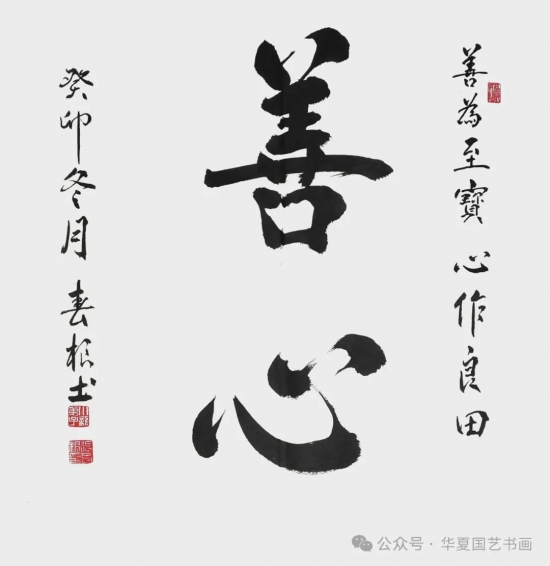 善为至寳心作良田
善
心
癸卯冬月春根书
公众号·华夏国艺书画